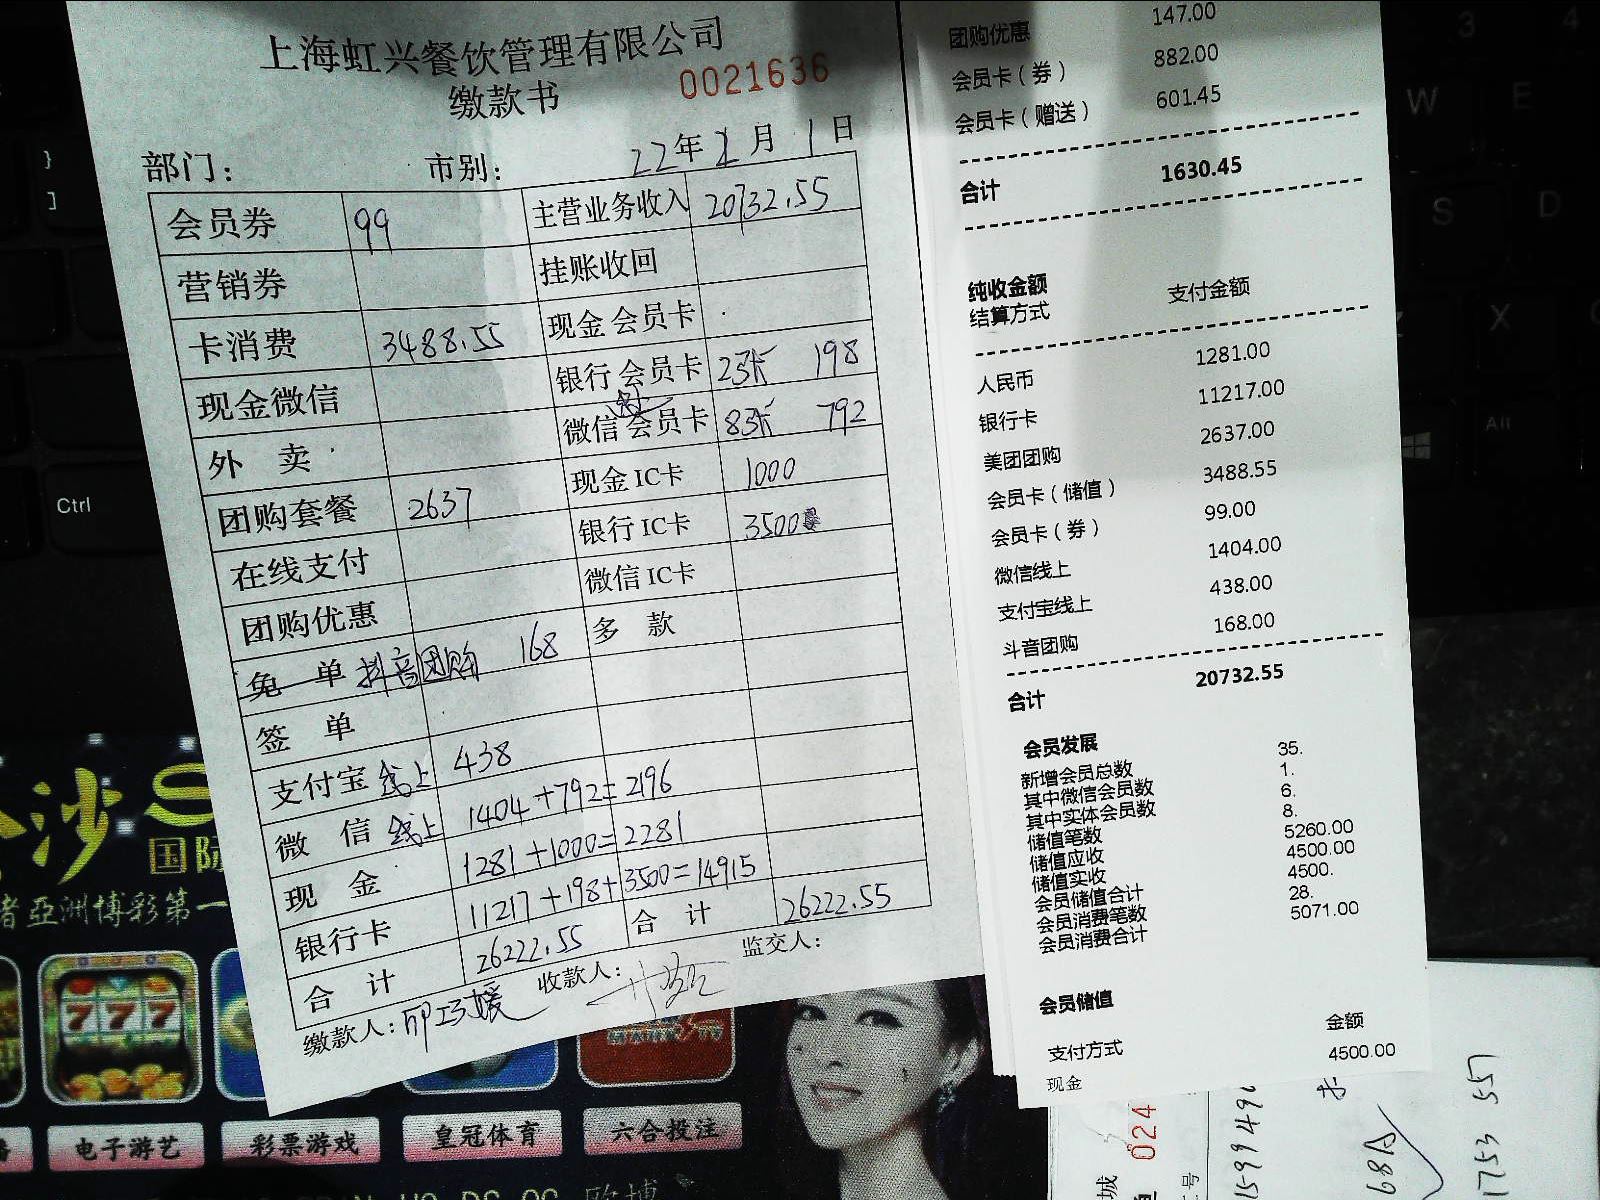 上海虹兴餐饮管理有限公司
缴款书
0021636
部门：
市别：
22年2月1日
会员券 99 主营业务收入 20732.55
营销券 挂账收回
卡消费 3488.55 现金会员卡
现金微信 银行会员卡 2张 198
外卖 微信会员卡 8张 792
团购套餐 2637 现金IC卡 1000
在线支付 银行IC卡 3500
团购优惠 微信IC卡
免单 抖音团购 168 多款
签单
支付宝线上 438
微信线上 1404+792=2196
现金 1281+1000=2281
银行卡 11217+198+3500=14915
合计 26222.55 合计 26222.55
缴款人：
收款人：
监交人：
147.00
团购优惠
882.00
会员卡（券）
601.45
会员卡（赠送）
合计 1630.45
纯收金额
结算方式 支付金额
人民币 1281.00
银行卡 11217.00
美团团购 2637.00
会员卡（储值） 3488.55
会员卡（券） 99.00
微信线上 1404.00
支付宝线上 438.00
斗音团购 168.00
合计 20732.55
会员发展
新增会员总数 35.
其中微信会员数 1.
其中实体会员数 6.
储值笔数 8.
储值应收 5260.00
储值实收 4500.00
会员储值合计 4500.
会员消费笔数 28.
会员消费合计 5071.00
会员储值
支付方式 金额
现金 4500.00
Ctrl
}
]
3
4
W
E
S
D
X
Alt
沙
国际
者亞洲博彩第一
777
电子游艺
彩票游戏
皇冠体育
六合投注
城
024
号
68A
1753 557